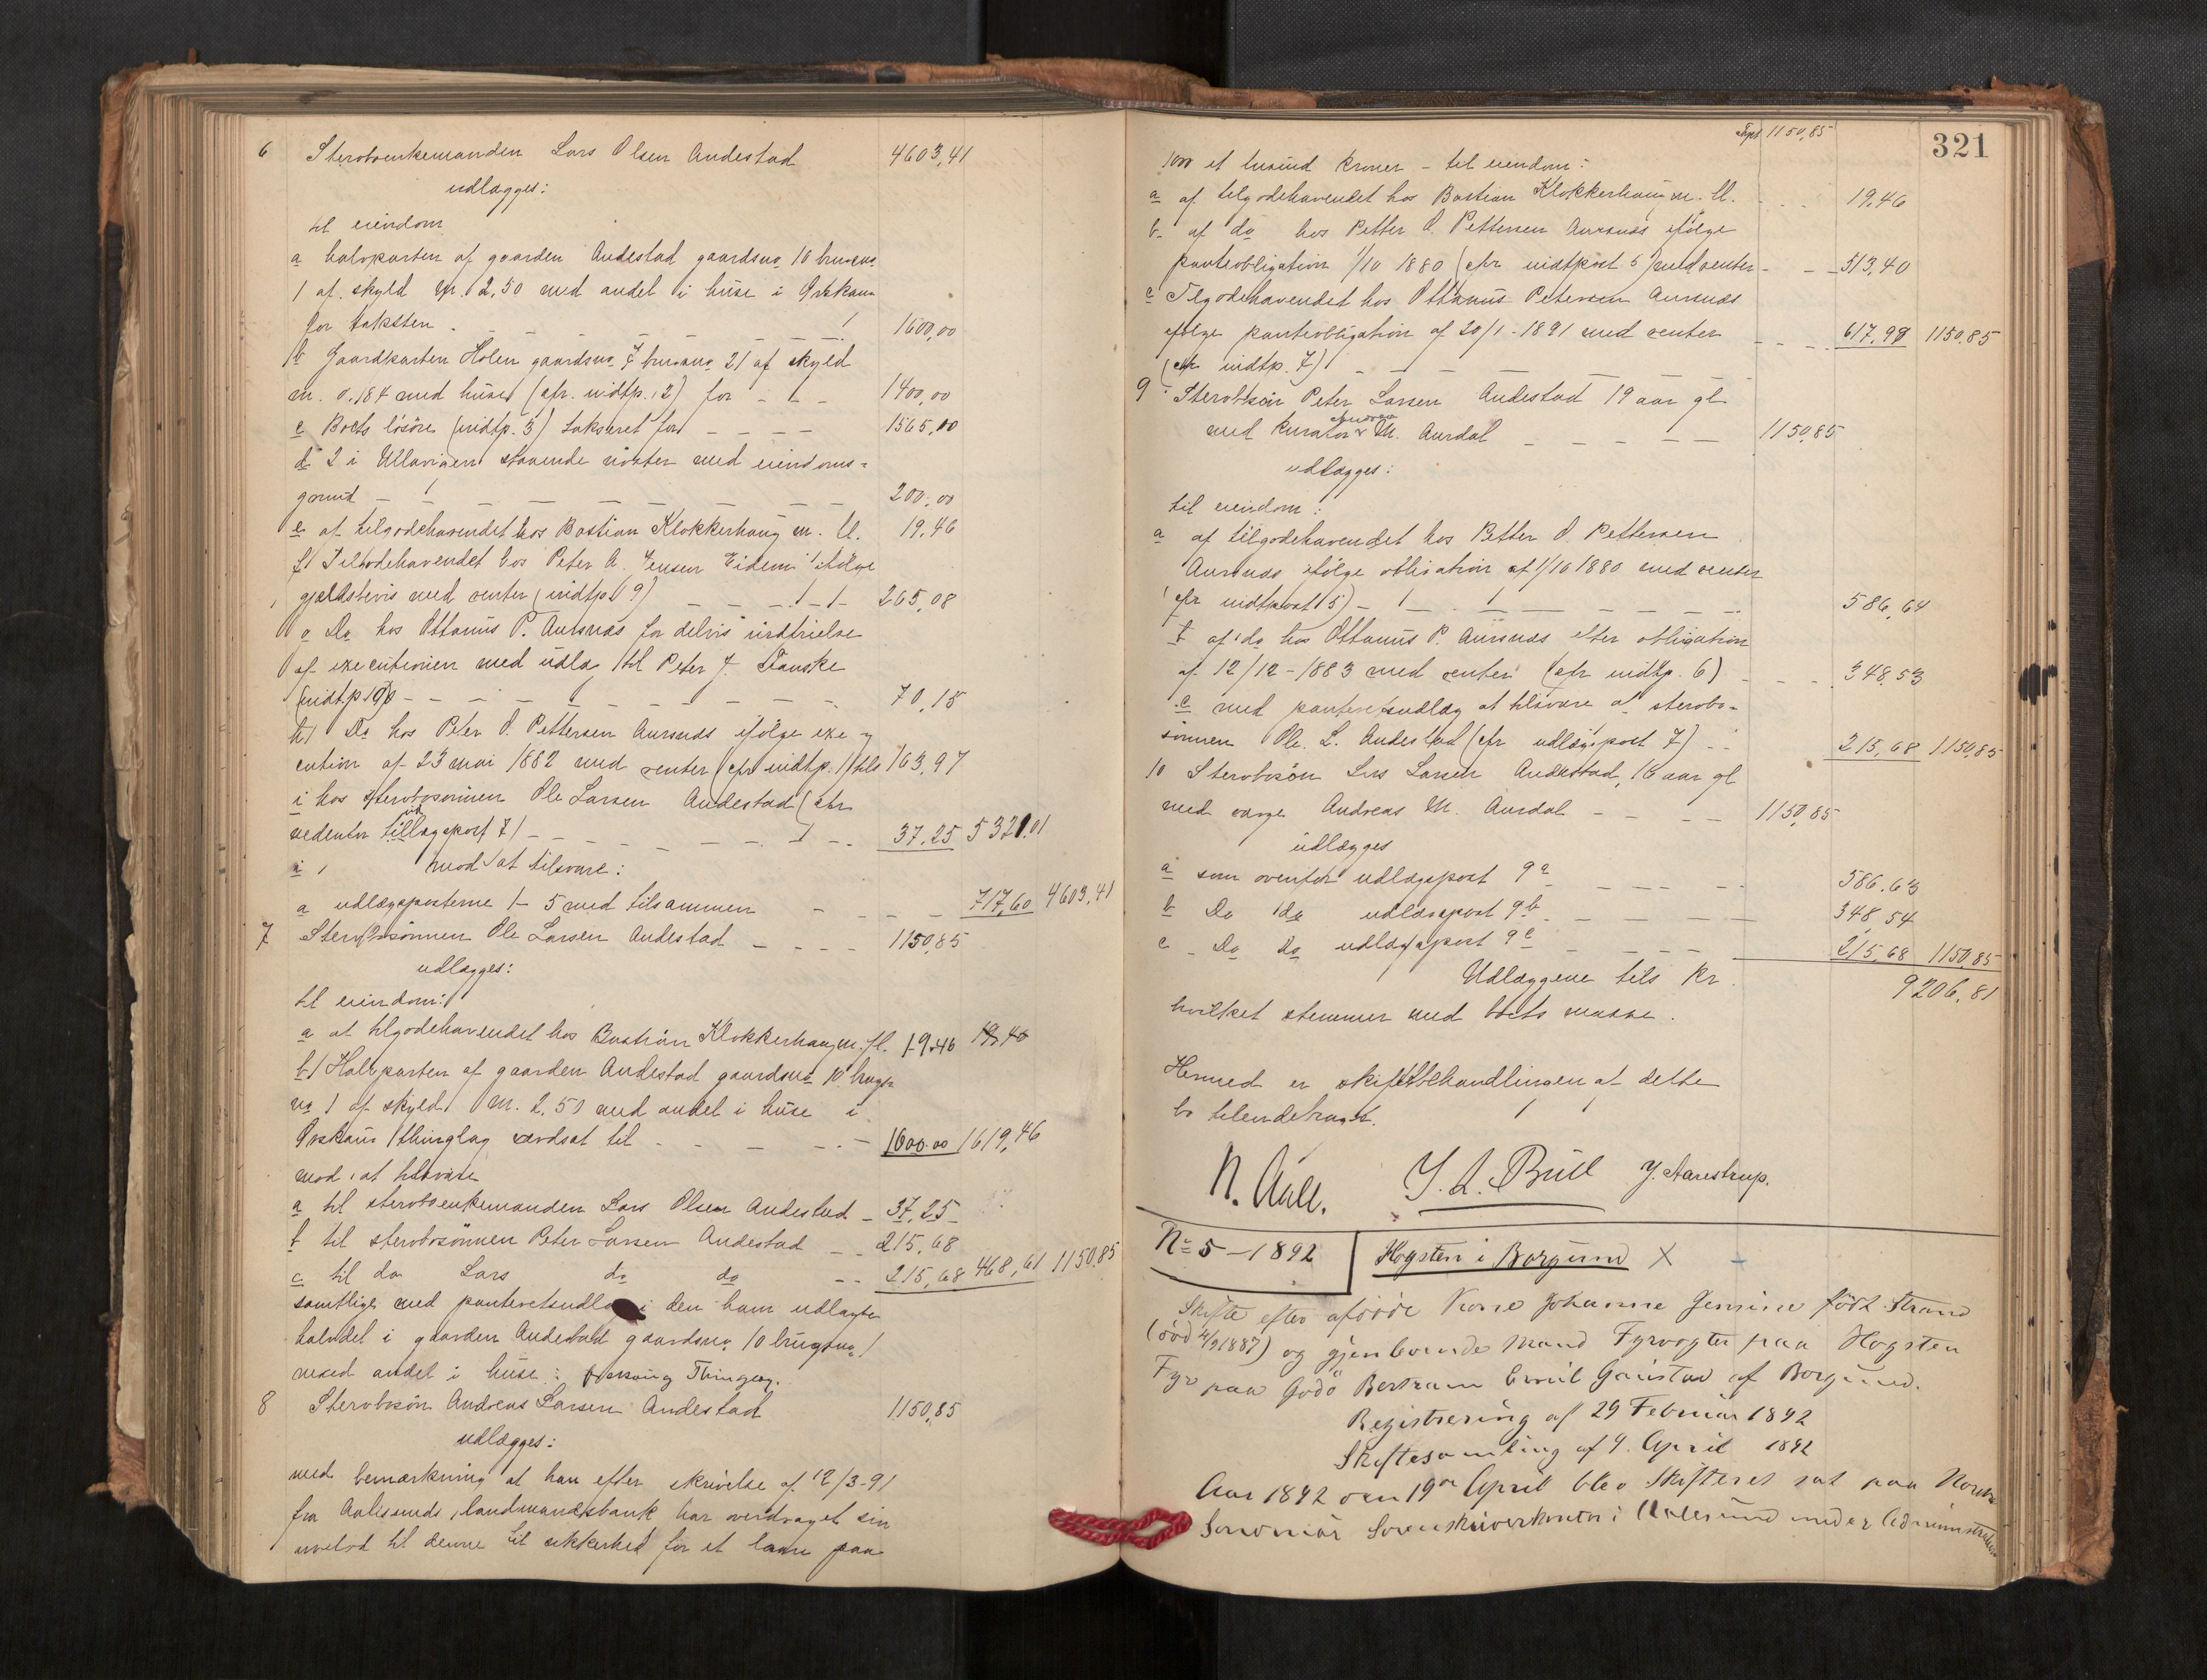 6 Sterbøenkemanden Lars Olsen Andestad 4603,41
udlægges:
til eiendom
a halvparten af gaarden Andestad gaardsno. 10 brugsno.
1 af skyld M. 2,50 med andel i huse i Ørskaug
for taksten 1600,00
b Gaardparten Holen gaardsno. 7 brugsno. 21 af skyld
m. 0,184 med huse (cfr. indtp. 2) for 1400,00
c Boets løsøre (indtp. 3) takseret for 1565,10
d 2 i Ullavigen staaende nøster med eiendoms-
grund 200,00
e af tilgodehavendet hos Bastian Klokkerhaug m. fl. 19,46
f Tilgodehavendet hos Peter A. Jensen Eidem ifølge
gjældsbevis med renter (indtp. 9) 265,08
g Do hos Ottanus P. Aursnæs for delvis inddrivelse
af executionen med udlæg til Peter J. Fauske
(indtp. 10) 70,15
h Do hos Peter O. Pettersen Aursnæs ifølge exe-
cution af 23 mai 1882 med renter (cfr indtp. 11) tils 163,97
i hos sterbosønnen Ole Larsen Andestad (cfr
nedenfor udlægspost 7) 37,25 5321,01
mod at tilsvare:
a udlægsposterne 1-5 med tilsammen 717,60 4603,41
7 Sterbosønnen Ole Larsen Andestad 1150,85
udlægges:
til eiendom:
a af tilgodehavendet hos Bastian Klokkerhaug m. fl. 19,46
b Halvparten af gaarden Andestad gaardsno. 10 brugs-
no. 1 af skyld M. 2,50 med andel i huse i
Ørskaug thinglag værdsat til 1600.00 1619,46
mod at tilsvare
a til sterboenkemanden Lars Olsen Andestad 37,25
b til sterbosønnen Peter Larsen Andestad 215,68
c til do Lars do do 215,68 468,61 1150,85
samtlige med panteretsudlæg i den ham udlagte
halvdel i gaarden Andestad gaardsno. 10 brugsno. 1
med andel i huse i Ørskaug Thinglag.
8 Sterbosøn Andreas Larsen Andestad 1150,85
udlægges:
med bemærkning at han efter skrivelse af 12/3-91
fra Aalesunds landmandsbank har overdraget sin
arvelod til denne til sikkerhed for et laan paa
321
Trpt 1150,85
1000 et tusind kroner - til eiendom:
a af tilgodehavendet hos Bastian Klokkerhaug m. fl. 19,46
b af do hos Petter O. Pettersen Aursnæs ifølge
panteobligation 1/10 1880 (cfr indtpost 5) med renter 513,40
c Tilgodehavendet hos Ottanus Petersen Aursnæs
ifølge panteobligation af 20/1-1891 med renter 617,99 1150.85
(cfr indtp. 7)
9 Sterbosøn Peter Larsen Andestad 19 aar gl
med kurator Andreas M. Aurdal 1150,85
udlægges:
til eiendom:
a af tilgodehavendet hos Petter O. Pettersen
Aursnæs ifølge obligation af 1/10 1880 med renter
(cfr indtpost 5) 586,64
b af do hos Ottanus P. Aursnæs efter obligation
af 12/12-1883 med renter (cfr indtp. 6) 348,53
c med panteretsudlæg at tilsvare af sterbo-
sønnen Ole L. Andestad (cfr udlægspost 7) 215,68 1150,85
10 Sterbosøn Lars Larsen Andestad, 16 aar gl
med værge Andreas M. Aurdal 1150,85
udlægges
a som ovenfor udlægspost 9 a 586.63
b Do do udlægspost 9 b 348,54
c Do do udlægspost 9 c 215,68 1150,85
Udlæggene tils kr. 9206,81
hvilket stemmer med boets masse.
Hermed er skiftebehandlingen af dette
bo tilendebragt.
N. Aall. J. L. Bull J. Aarestrup.
No 5 - 1892 Hogsten i Borgund X
Skifte efter afdøde Kone Johanne Jensine født Strand
(død 4/9 1887) og gjenlevende Mand Fyrvogter paa Hogsten
Fyr paa Godø Bertram Emil Gaustad af Borgund.
Registrering af 29 Februar 1892
Skiftesamling af 9. April 1892
Aar 1892 den 19de April blev Skifteret sat paa Nordre
Søndmør Sorenskriverkontor i Aalesund under Administration